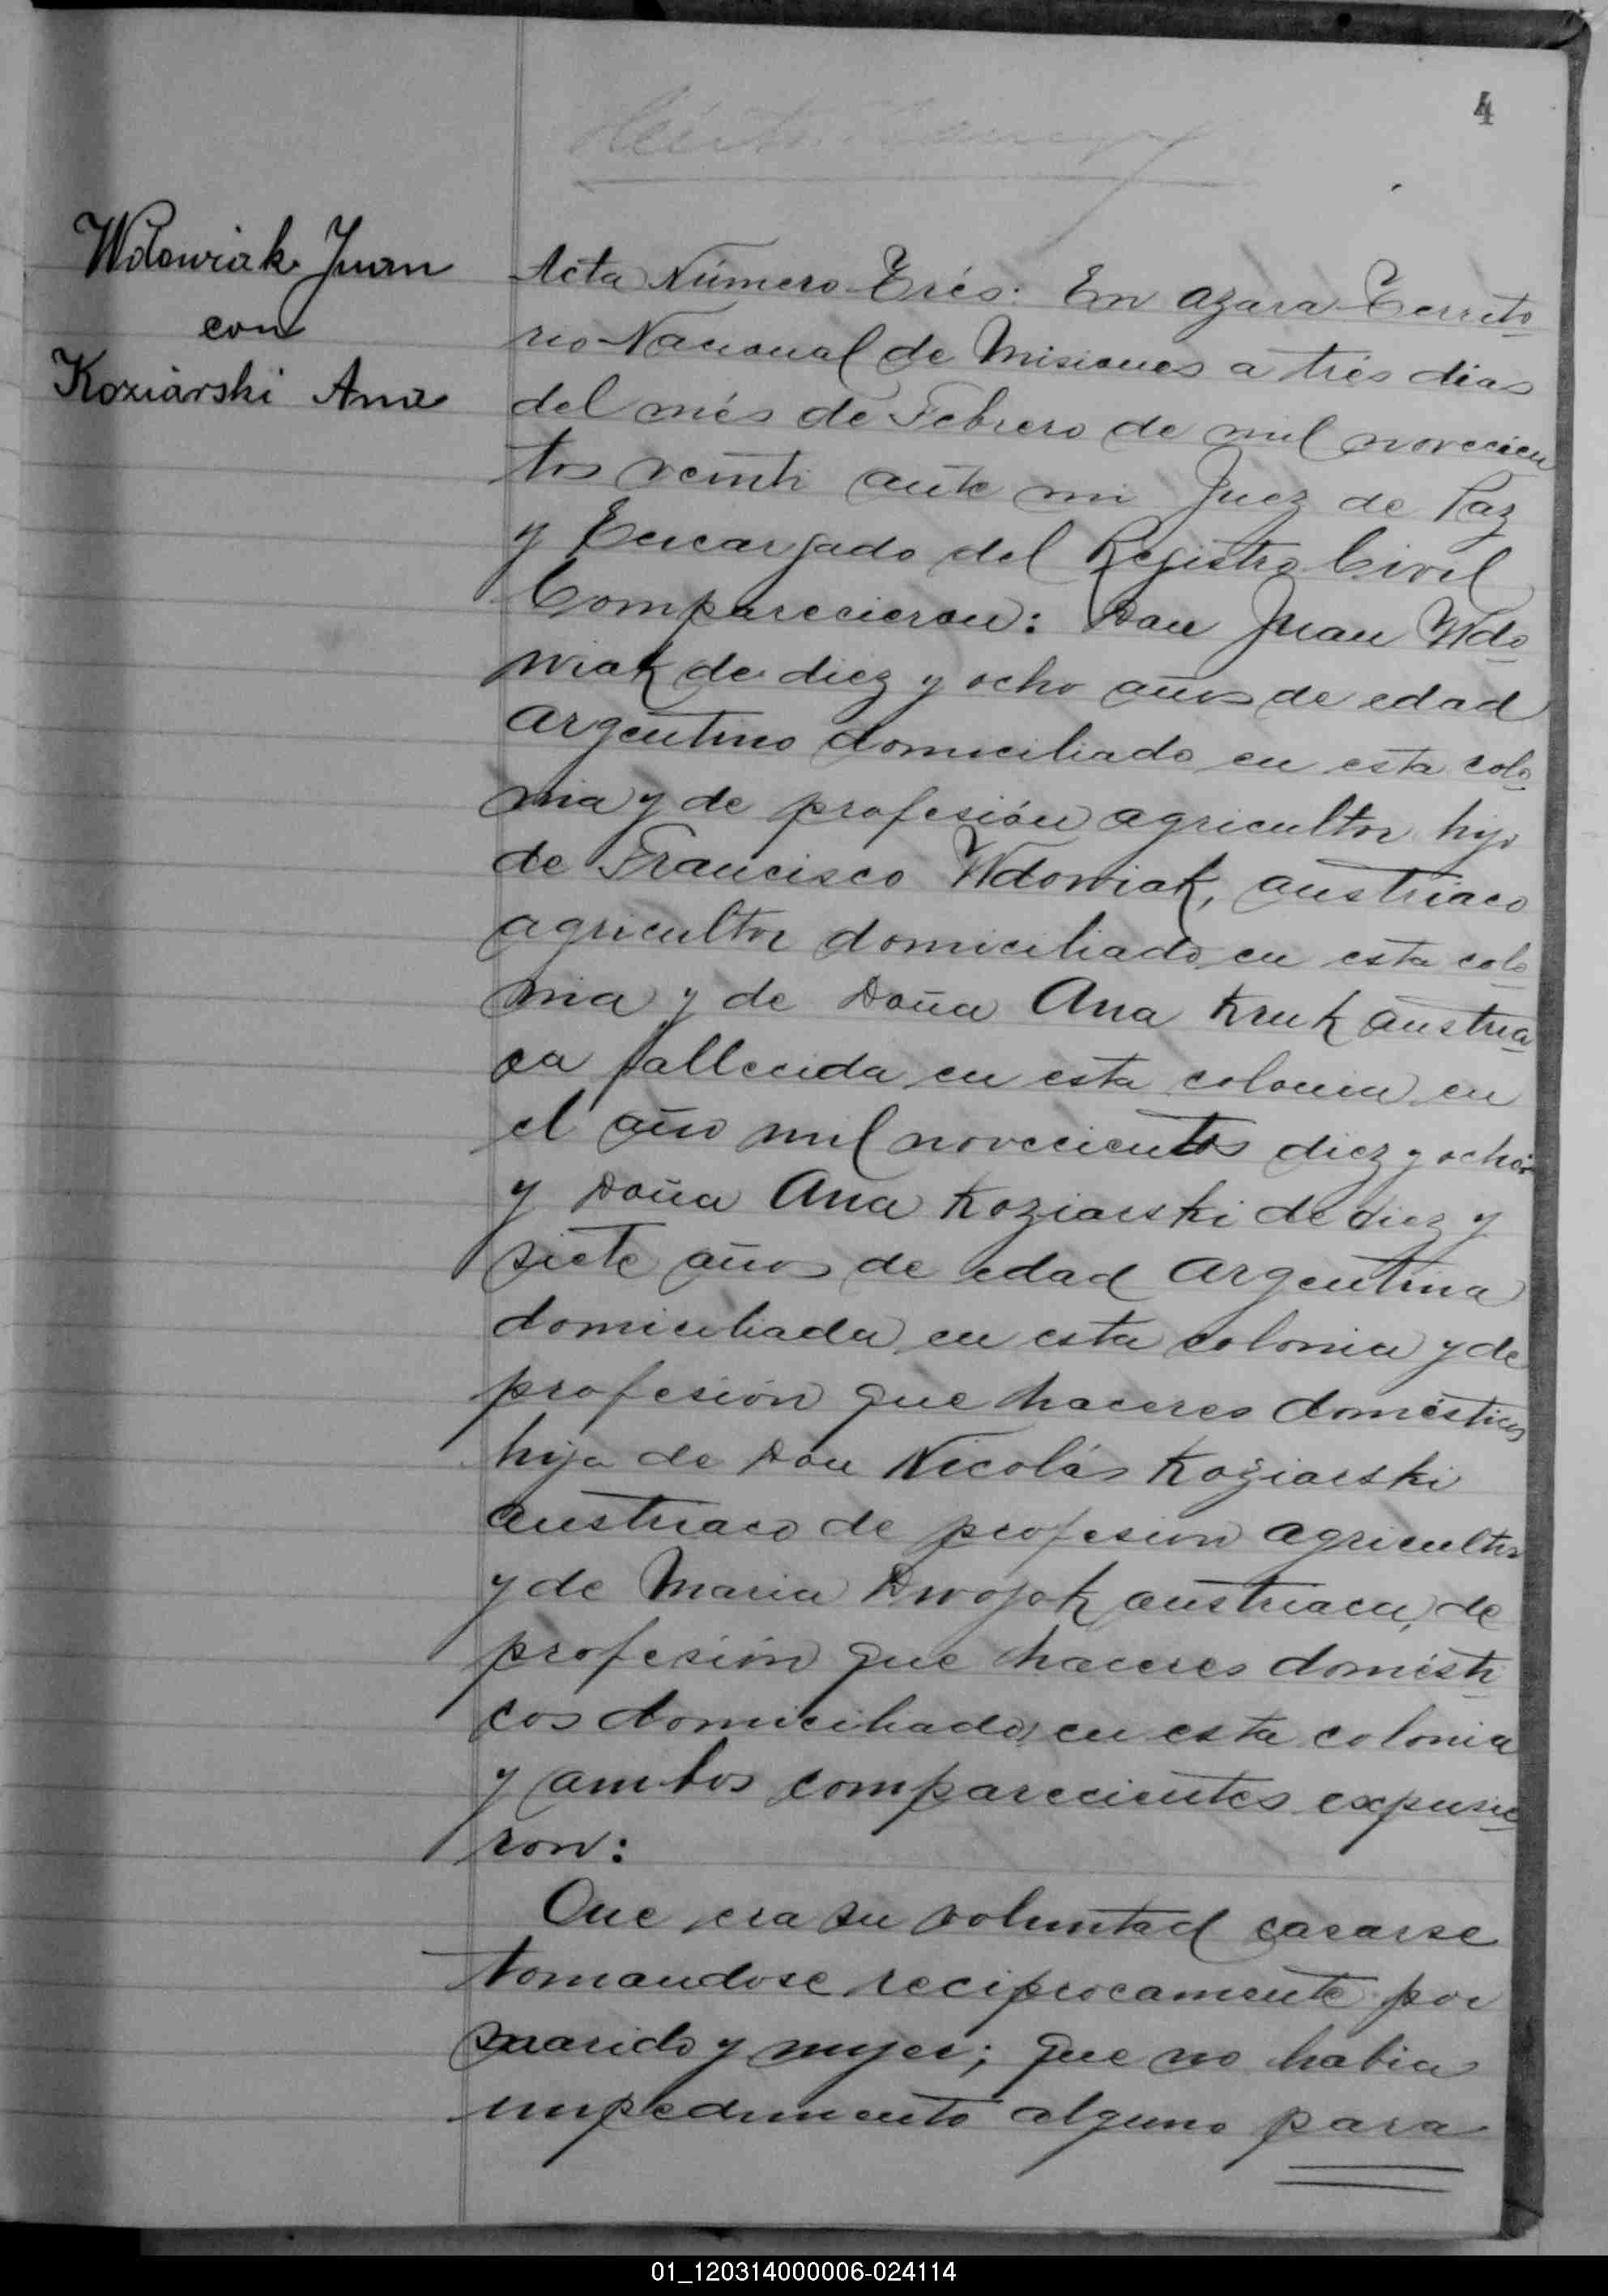 4
Wdowiak Juan
con
Koziarski Ana
Acta Número Trés: En Azara Territo
rio Nacional de Misiones a trés dias
del més de Febrero de mil novecien
tos veinti ante mi Juez de Paz
y Encargado del Registro Civil
Comparecieron: Don Juan Wdo
wiak de diez y ocho años de edad
Argentino domiciliado en esta colo
nia y de profesión agricultor hijo
de Francisco Wdowiak, austriaco
agricultor domiciliado en esta colo
nia y de Doña Ana Kruk austria
ca fallecida en esta colonia en
el año mil novecientos diez y ocho
y Doña Ana Koziarski de diez y
siete años de edad Argentina
domiciliada en esta colonia y de
profesión que haceres domésticos
hija de Don Nicolás Koziarski
austriaco de profesion agricultor
y de Maria Dwojak austriaca, de
profesión que haceres domésti
cos domiciliados en esta colonia
y ambos comparecientes expusie
ron:
Que era su voluntad casarse
tomandose reciprocamente por
marido y mujer; que no habia
impedimento alguno para
01_120314000006-024114